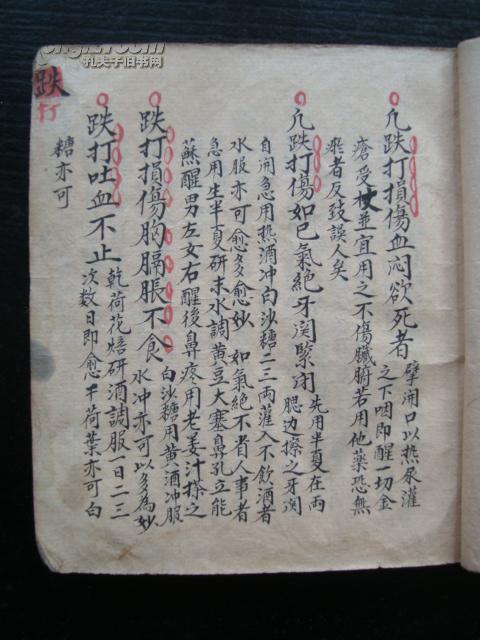 凢跌打損傷血悶欲死者 擘開口以热尿灌
之下咽即醒一切金
瘡受杖並宜用之不傷臟腑若用他藥恐無
飛者反致誤人矣
凢跌打傷如已氣絶牙関緊闭 先用半夏在両
腮边擦之牙関
自闹急用热酒冲白沙糖二三両灌入不飲酒者
水服亦可愈多愈妙 如氣絶不省人事者
急用生半夏研末水調黄豆大塞鼻孔立能
蘇醒男左女右醒後鼻疼用老姜汁搽之
跌打損傷胸膈脹不食 白沙糖用黄酒冲服
水冲亦可以多為妙
跌打吐血不止 乾荷花焙研酒調服一日二三
次数日即愈干荷葉亦可白
糖亦可
跌打
孔夫子旧书网